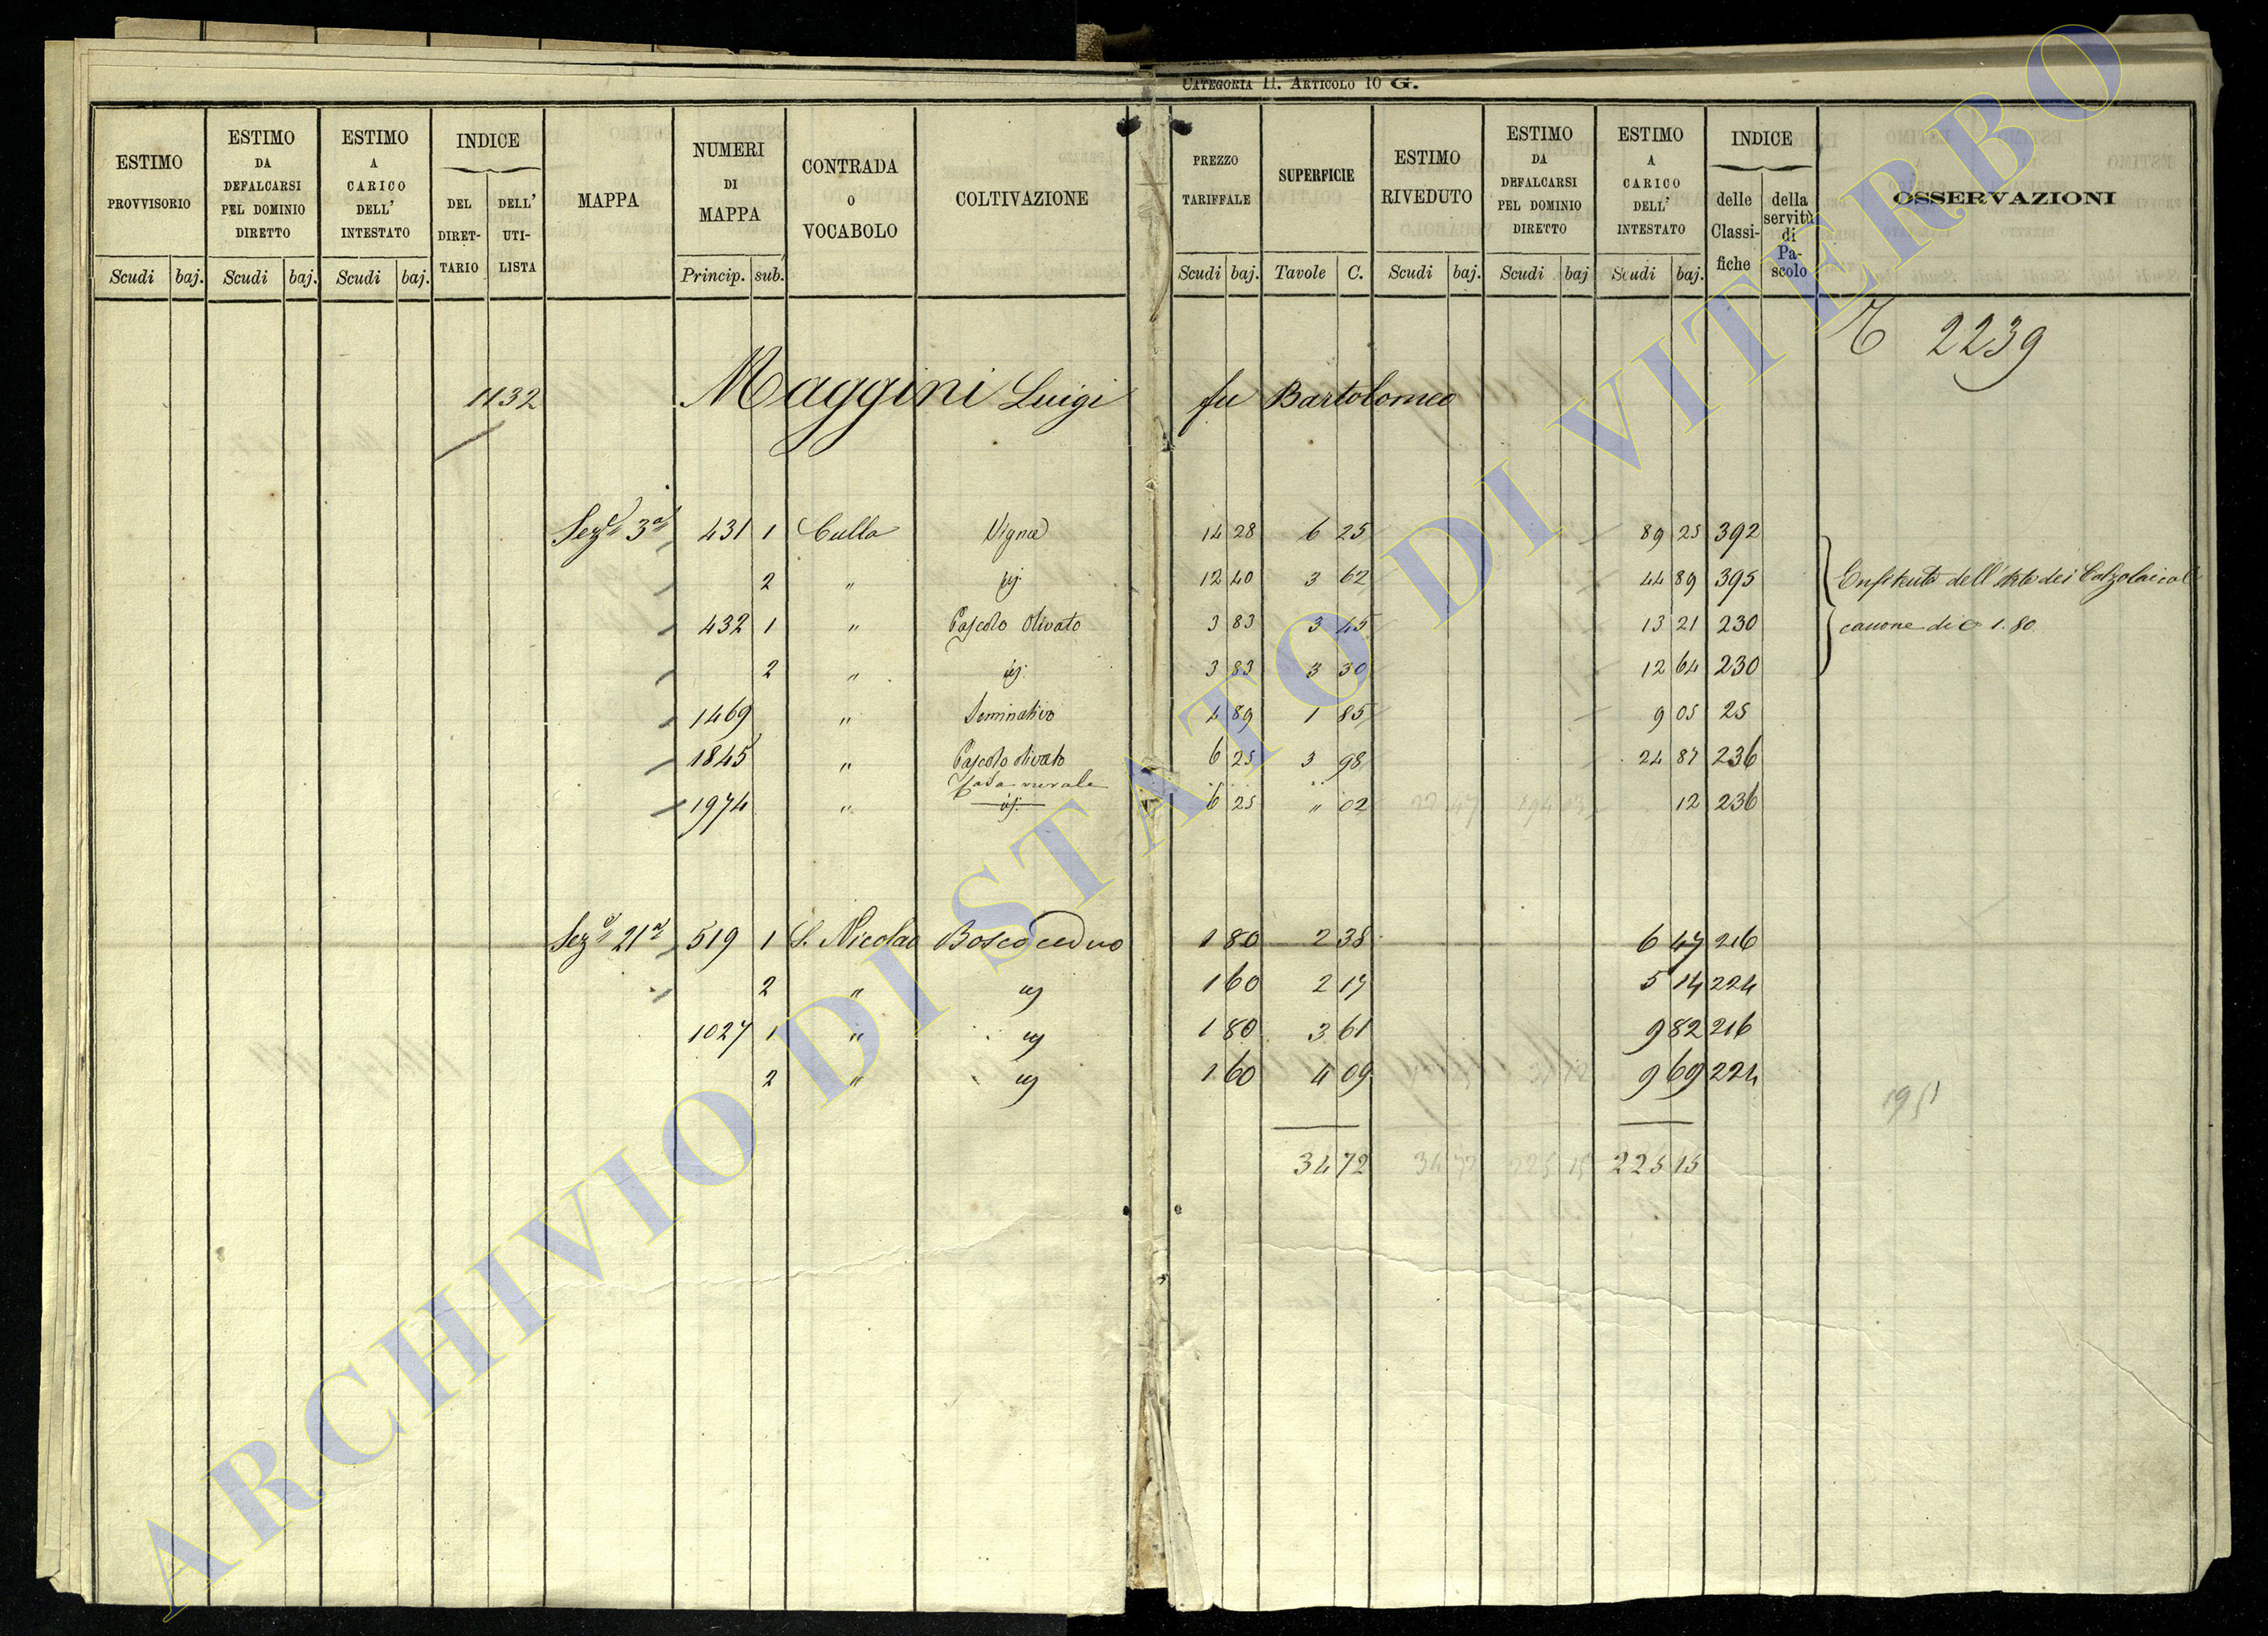 CATEGORIA II. ARTICOLO 10 G.
ESTIMO PROVVISORIO Scudi baj.
ESTIMO DA DEFALCARSI PEL DOMINIO DIRETTO Scudi baj.
ESTIMO A CARICO DELL' INTESTATO Scudi baj.
INDICE DEL DIRET-TARIO DELL' UTI-LISTA
MAPPA
NUMERI DI MAPPA Princip. sub.
CONTRADA O VOCABOLO
COLTIVAZIONE
PREZZO TARIFFALE Scudi baj.
SUPERFICIE Tavole C.
ESTIMO RIVEDUTO Scudi baj.
ESTIMO DA DEFALCARSI PEL DOMINIO DIRETTO Scudi baj
ESTIMO A CARICO DELL' INTESTATO Scudi baj.
INDICE delle Classi-fiche della servitù di Pa-scolo
OSSERVAZIONI
2239
1132 Maggini Luigi fu Bartolomeo
Sez.e 3a 431 1 Culla Vigna 14 28 6 25 89 25 392
2 " id. 12 40 3 62 44 89 395 Enfiteuta dell'Arte dei Calzolai col
432 1 " Pascolo olivato 3 83 3 45 13 21 230 canone di 1.80
2 " id. 3 83 3 30 12 64 230
1469 " Seminativo 4 89 1 85 9 05 25
1845 " Pascolo olivato 6 25 3 98 24 87 236
Casa rurale
1974 " id. 6 25 " 02 12 236
Sez.e 21a 519 1 S. Nicolao Bosco ceduo 1 80 2 38 6 47 216
2 " id 1 60 2 17 5 14 224
1027 1 " id 1 80 3 61 9 82 216
2 " id 1 60 4 09 9 69 224
1951
34 72 34 72 225 15 225 15
ARCHIVIO DI STATO DI VITERBO